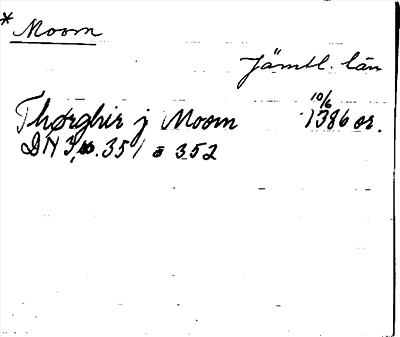 * Moom
Jämtl. län
Thørghir j Moom 10/6 1386 or.
DN 3, s. 351 o 352